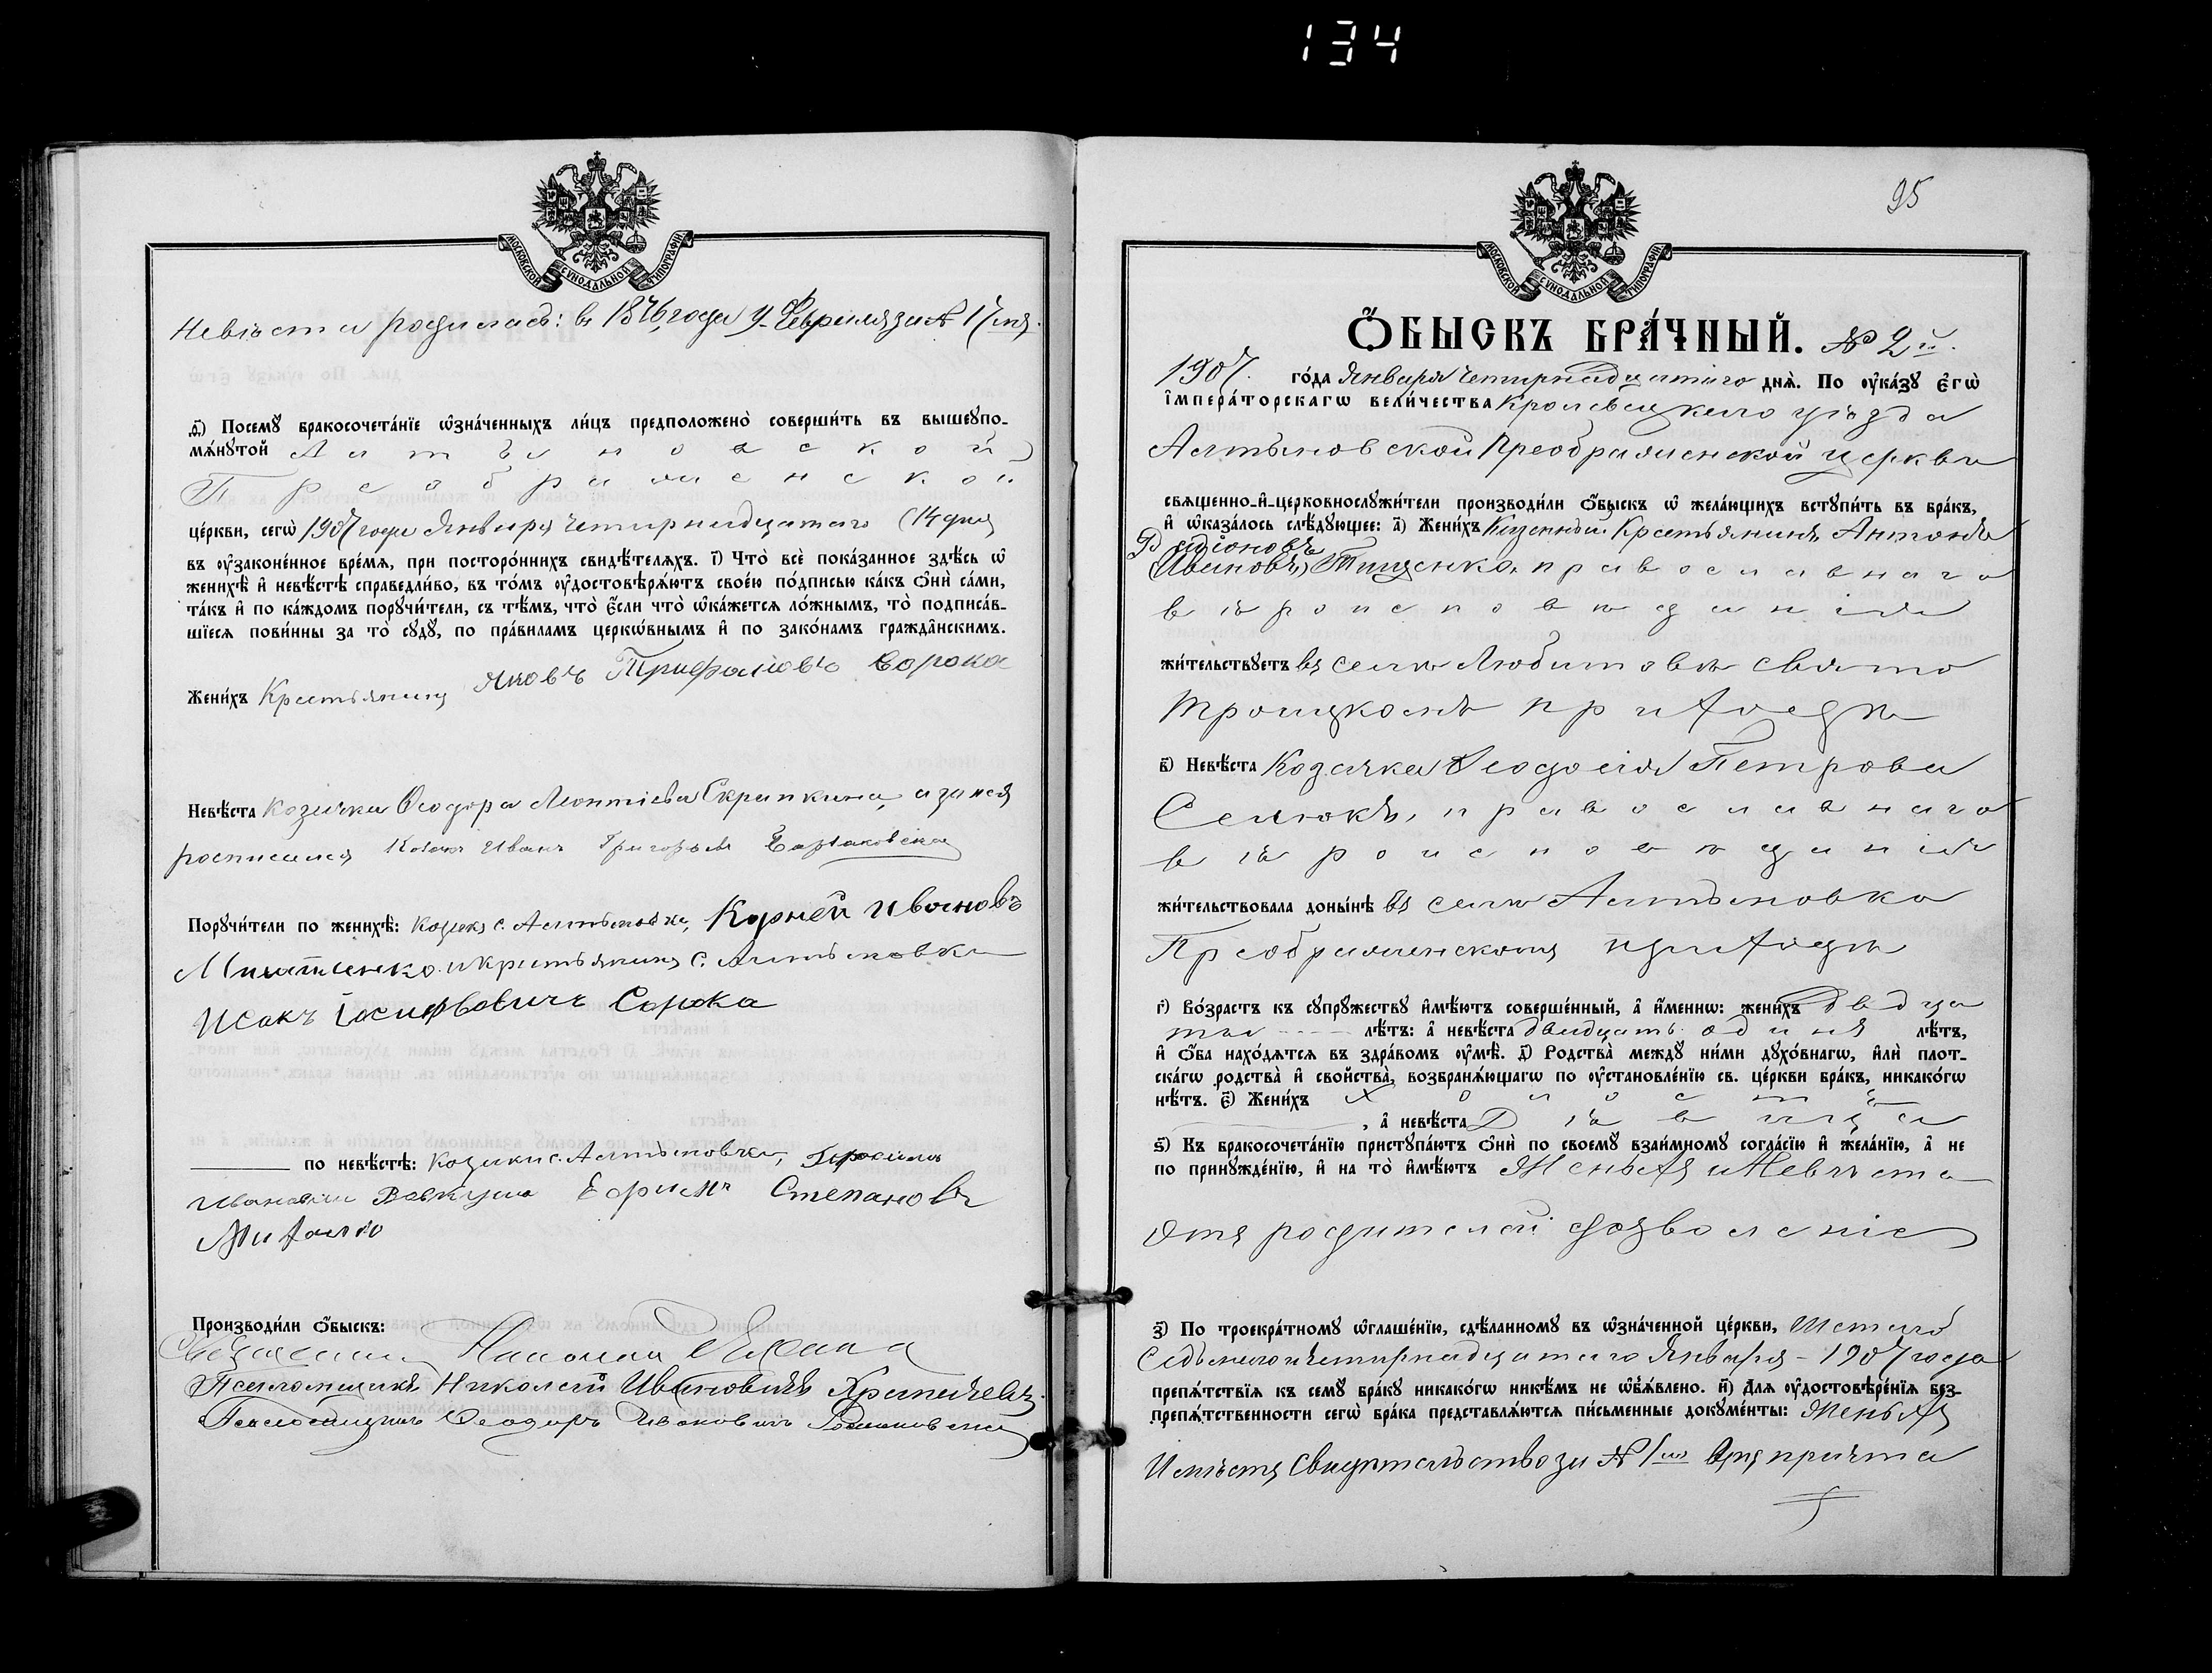 134
МОСКОВСКОЙ СѴНОДАЛЬНОЙ ТИПОГРАФІИ
Невѣста родилась: въ 1876, года
д҃) Посемꙋ бракосочетáнїе ѡ҆знáченныхъ ли́цъ предположенò соверши́ть въ вышеꙋпо-
мѧ́нꙋтой Алтыновской
Преображенской
це́ркви, сегѡ̀ 1907 года Января четырнадцатаго (14 дня)
въ ᲂу҆законе́нное вре́мѧ, при посторо́ннихъ свидѣ́телѧхъ. і҃) Чтò всѐ показанное здѣ́сь ѡ҆
женихѣ̀ и҆ невѣ́стѣ справедли́во, въ то́мъ ᲂу҆достовѣрѧ́ютъ свое́ю по́дписью какъ ѻ҆нѝ са́ми,
та́къ и҆ по ка́ждомъ порꙋчи́тели, съ тѣ́мъ, что̀ є҆́сли что̀ ѡ҆ка́жетсѧ ло́жнымъ, то̀ подписа́в-
шїесѧ пови́нны за то̀ сꙋдꙋ̀, по пра́виламъ церкѡ́внымъ и҆ по зако́намъ гражда̂нскимъ.
Жени́хъ Крестьянинъ Яковъ Трифоновъ Сорока
Невѣ́ста Козачка Ѳеодора Леонтіева Скрипкина, а за нея
росписался Козакъ Иванъ Григорьев
Порꙋчи́тели по женихѣ̀: козакъ с. Алтыновки, Корней Ивановъ
и крестьянинъ с. Алтыновки
Исакъ Іосифовичъ Сорока
по невѣ́стѣ: Козаки с. Алтыновки,
Ефимъ Степановъ
Михалко
Производи́ли ѻ҆́быскъ:
Священникъ Николай
Псаломщикъ Николай Ивановичъ
Псаломщикъ Ѳеодоръ Ивановичъ
95
МОСКОВСКОЙ СѴНОДАЛЬНОЙ ТИПОГРАФІИ
Ѻ҆́БЫСКЪ БРА́ЧНЫЙ. № 2й.
1907. го́да Января четырнадцатаго днѧ̀. По ᲂу҆ка́зꙋ є҆гѡ̀
і҆мпера́торскагѡ вели́чества Кролевецкаго уѣзда
Алтыновской Преображенской церкви
свѧщенно-и҆-церковнослꙋжи́тели производи́ли ѻ҆́быскъ ѡ҆ жела́ющихъ вступи́ть въ бра́къ,
и҆ ѡ҆каза́лось слѣ́дꙋющее: а҃) Жени́хъ Казенный Крестьянинъ Антонъ
Родіоновъ
(Ивановъ) Тищенко, православнаго
вѣроисповѣданія
жи́тельствꙋетъ въ селѣ Любитовѣ Свято
Троицкомъ приходѣ
в҃) Невѣ́ста Козачка Ѳеодосія Петрова
Селюкъ, православнаго
вѣроисповѣданія
жи́тельствовала доны́нѣ въ селѣ Алтыновка
Преображенскомъ приходѣ
г҃) Во́зрастъ къ сꙋпрꙋ́жествꙋ и҆мѣ́ютъ соверше́нный, а҆ и҆́менно: жени́хъ Двадца
ти лѣ́тъ: а҆ невѣ́ста двадцать одинъ лѣ́тъ,
и҆ ѻ҆́ба нахо́дѧтсѧ въ здра́вомъ ᲂу҆мѣ̀. д҃) Родства̀ междꙋ̀ ни́ми дꙋхо́внагѡ, и҆лѝ плот-
ска́гѡ родства̀ и҆ свойства̀, возбранѧ́ющагѡ по ᲂу҆становле́нїю св. це́ркви бра́къ, никако́гѡ
нѣ́тъ. є҃) Жени́хъ Холостъ
, а҆ невѣ́ста Дѣвица
ѕ҃) Къ бракосочета́нїю пристꙋпа́ютъ ѻ҆нѝ по своемꙋ̀ взаи́мномꙋ согла́сїю и҆ жела́нїю, а҆ не
по принꙋжде́нїю, и҆ на то̀ и҆мѣ́ютъ Женихъ и Невѣста
Отъ родителей дозволеніе
з҃) По троекра́тномꙋ ѡ҆глаше́нїю, сдѣ́ланномꙋ въ ѡ҆зна́ченной це́ркви, Шестаго
Седьмаго и Четырнадцатаго Января - 1907 года
препѧ́тствїѧ къ семꙋ̀ бра́кꙋ никако́гѡ никѣ́мъ не ѡ҆б̾ѧ́влено. и҃) Длѧ ᲂу҆достовѣре́нїѧ без-
препѧ́тственности сегѡ̀ бра́ка представлѧ́ютсѧ пи́сьменные докꙋме́нты: Женихъ
Имѣетъ Свидѣтельство за № 1мъ Отъ причта